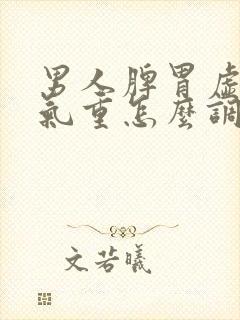 男人脾胃虛
氣重怎麼調
文若曦